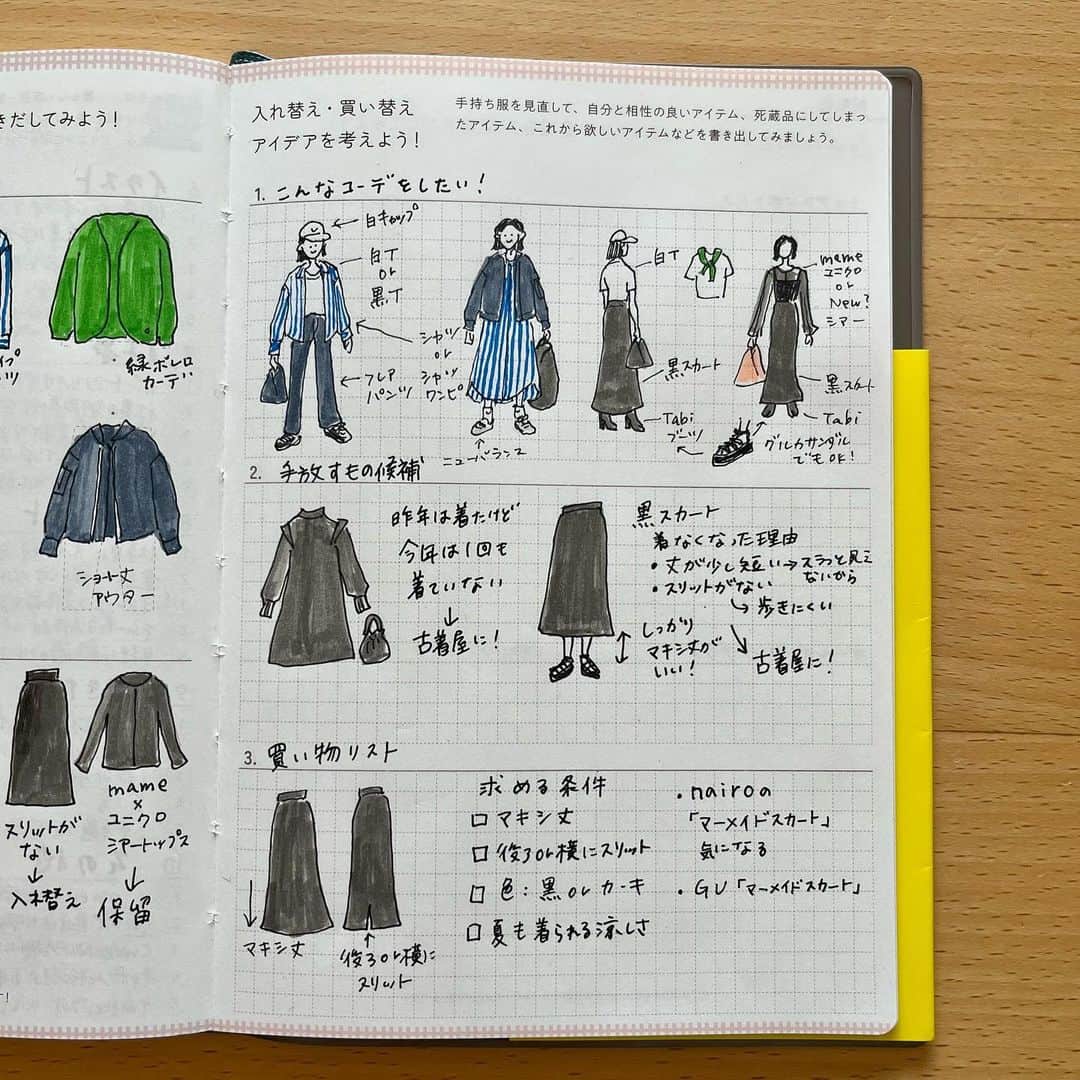 きだしてみよう!
緑ボレロ
カーデ
ショート丈
アウター
スリットが
ない
↓
入れ替え
mame
×
ユニクロ
シアートップス
↓
保留
入れ替え・買い替え
アイデアを考えよう!
手持ち服を見直して、自分と相性の良いアイテム、死蔵品にしてしまっ
たアイテム、これから欲しいアイテムなどを書き出してみましょう。
1. こんなコーデをしたい!
白キャップ
白T
or
黒T
シャツ
or
シャツ
ワンピ
フレア
パンツ
ニューバランス
白T
黒スカート
Tabi
ブーツ
mame
ユニクロ
or
New?
シアー
黒スカート
Tabi
グルカサンダル
でもOK!
2. 手放すもの候補
昨年は着たけど
今年は1回も
着ていない
↓
古着屋に!
黒スカート
着なくなった理由
・丈が少し短い→スラっと見え
ないから
・スリットがない
↳ 歩きにくい
↓
古着屋に!
しっかり
マキシ丈が
いい!
3. 買い物リスト
マキシ丈
後ろor横に
スリット
求める条件
□ マキシ丈
□ 後ろor横にスリット
□ 色:黒orカーキ
□ 夏も着られる涼しさ
・nairoの
「マーメイドスカート」
気になる
・GU「マーメイドスカート」